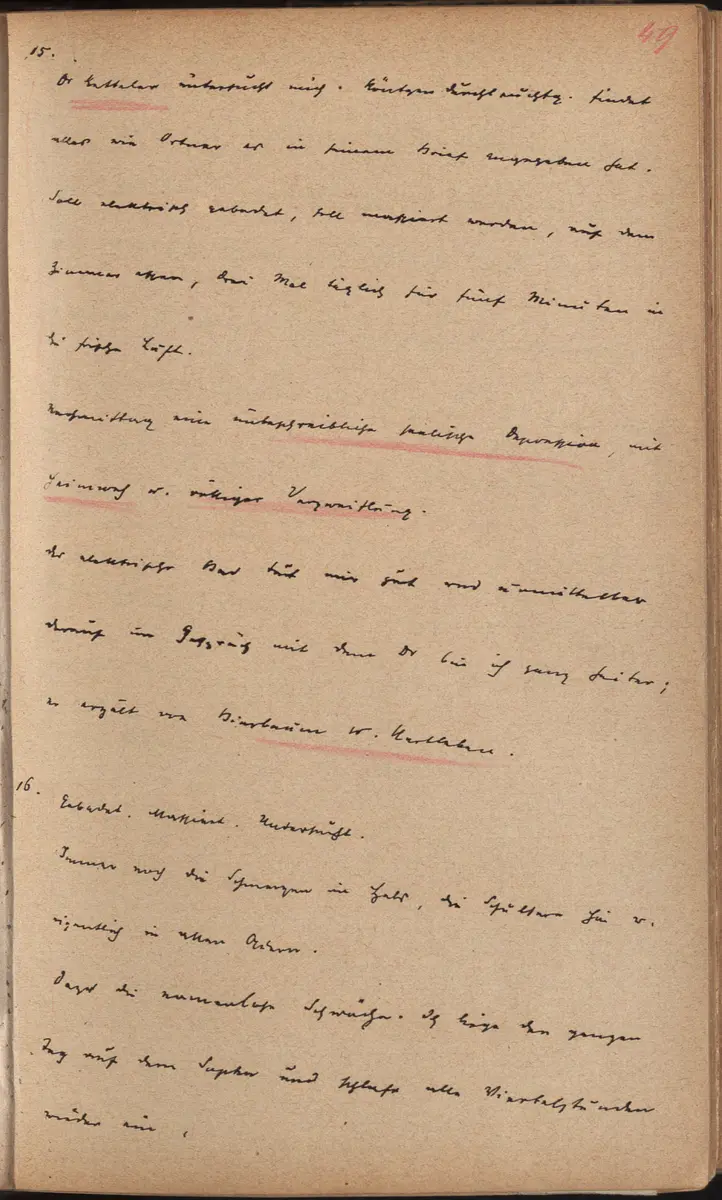 49
15.
Dr Kettelar untersucht mich. Röntgendurchleuchtg. findet
alles wie Ortner es in seinem Brief angegeben hat.
Soll elektrisch gebadet, soll massiert werden, auf dem
Zimmer essen, drei Mal täglich für fünf Minuten in
die frische Luft.
Nachmittag eine unbeschreibliche seelische Depression, mit
Heimweh u. völliger Verzweiflung.
Das elektrische Bad tut mir gut und unmittelbar
darauf im Gespräch mit dem Dr bin ich ganz heiter;
er erzält von Bierbaum u. Hartleben.
16.
Gebadet. Massiert. Untersucht.
Immer noch die Schmerzen im Hals, die Schultern hin u.
eigentlich in allen Adern.
Dazu die namenlose Schwäche. Ich liege den ganzen
Tag auf dem Sopha und schlafe alle Viertelstunden
wieder ein,